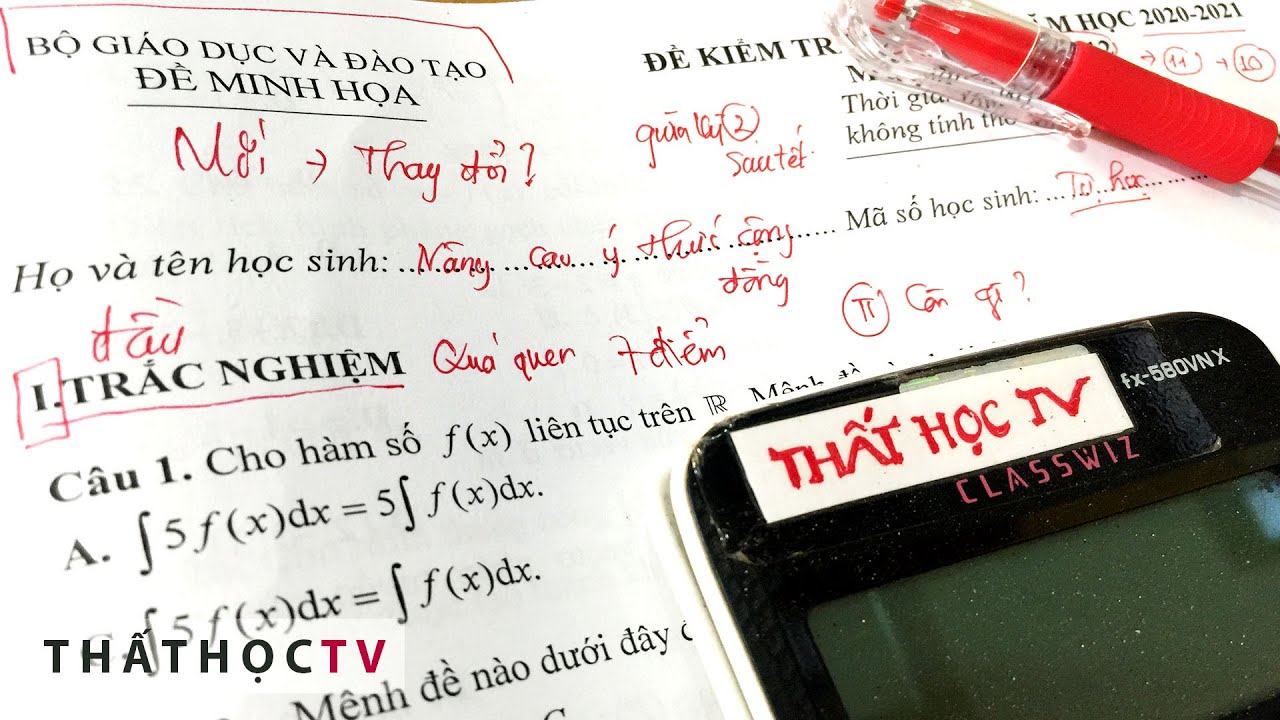 BỘ GIÁO DỤC VÀ ĐÀO TẠO
ĐỀ MINH HỌA
ĐỀ KIỂM TR
ĂM HỌC 2020-2021
→ 11 → 10
Thời gia
không tính th
Mới → Thay đổi?
giữa kỳ 2
sau tết.
Họ và tên học sinh: Nâng cao ý thức cộng đồng
Mã số học sinh: Tự học
đầu
II Cần gì?
I. TRẮC NGHIỆM Quá quen 7 điểm
Câu 1. Cho hàm số f(x) liên tục trên ℝ. Mệnh đề
A. ∫5f(x)dx = 5∫f(x)dx.
C. ∫5f(x)dx = ∫f(x)dx.
Mệnh đề nào dưới đây
fx-580VN X
THẤT HỌC TV
CLASSWIZ
THẤTHỌCTV